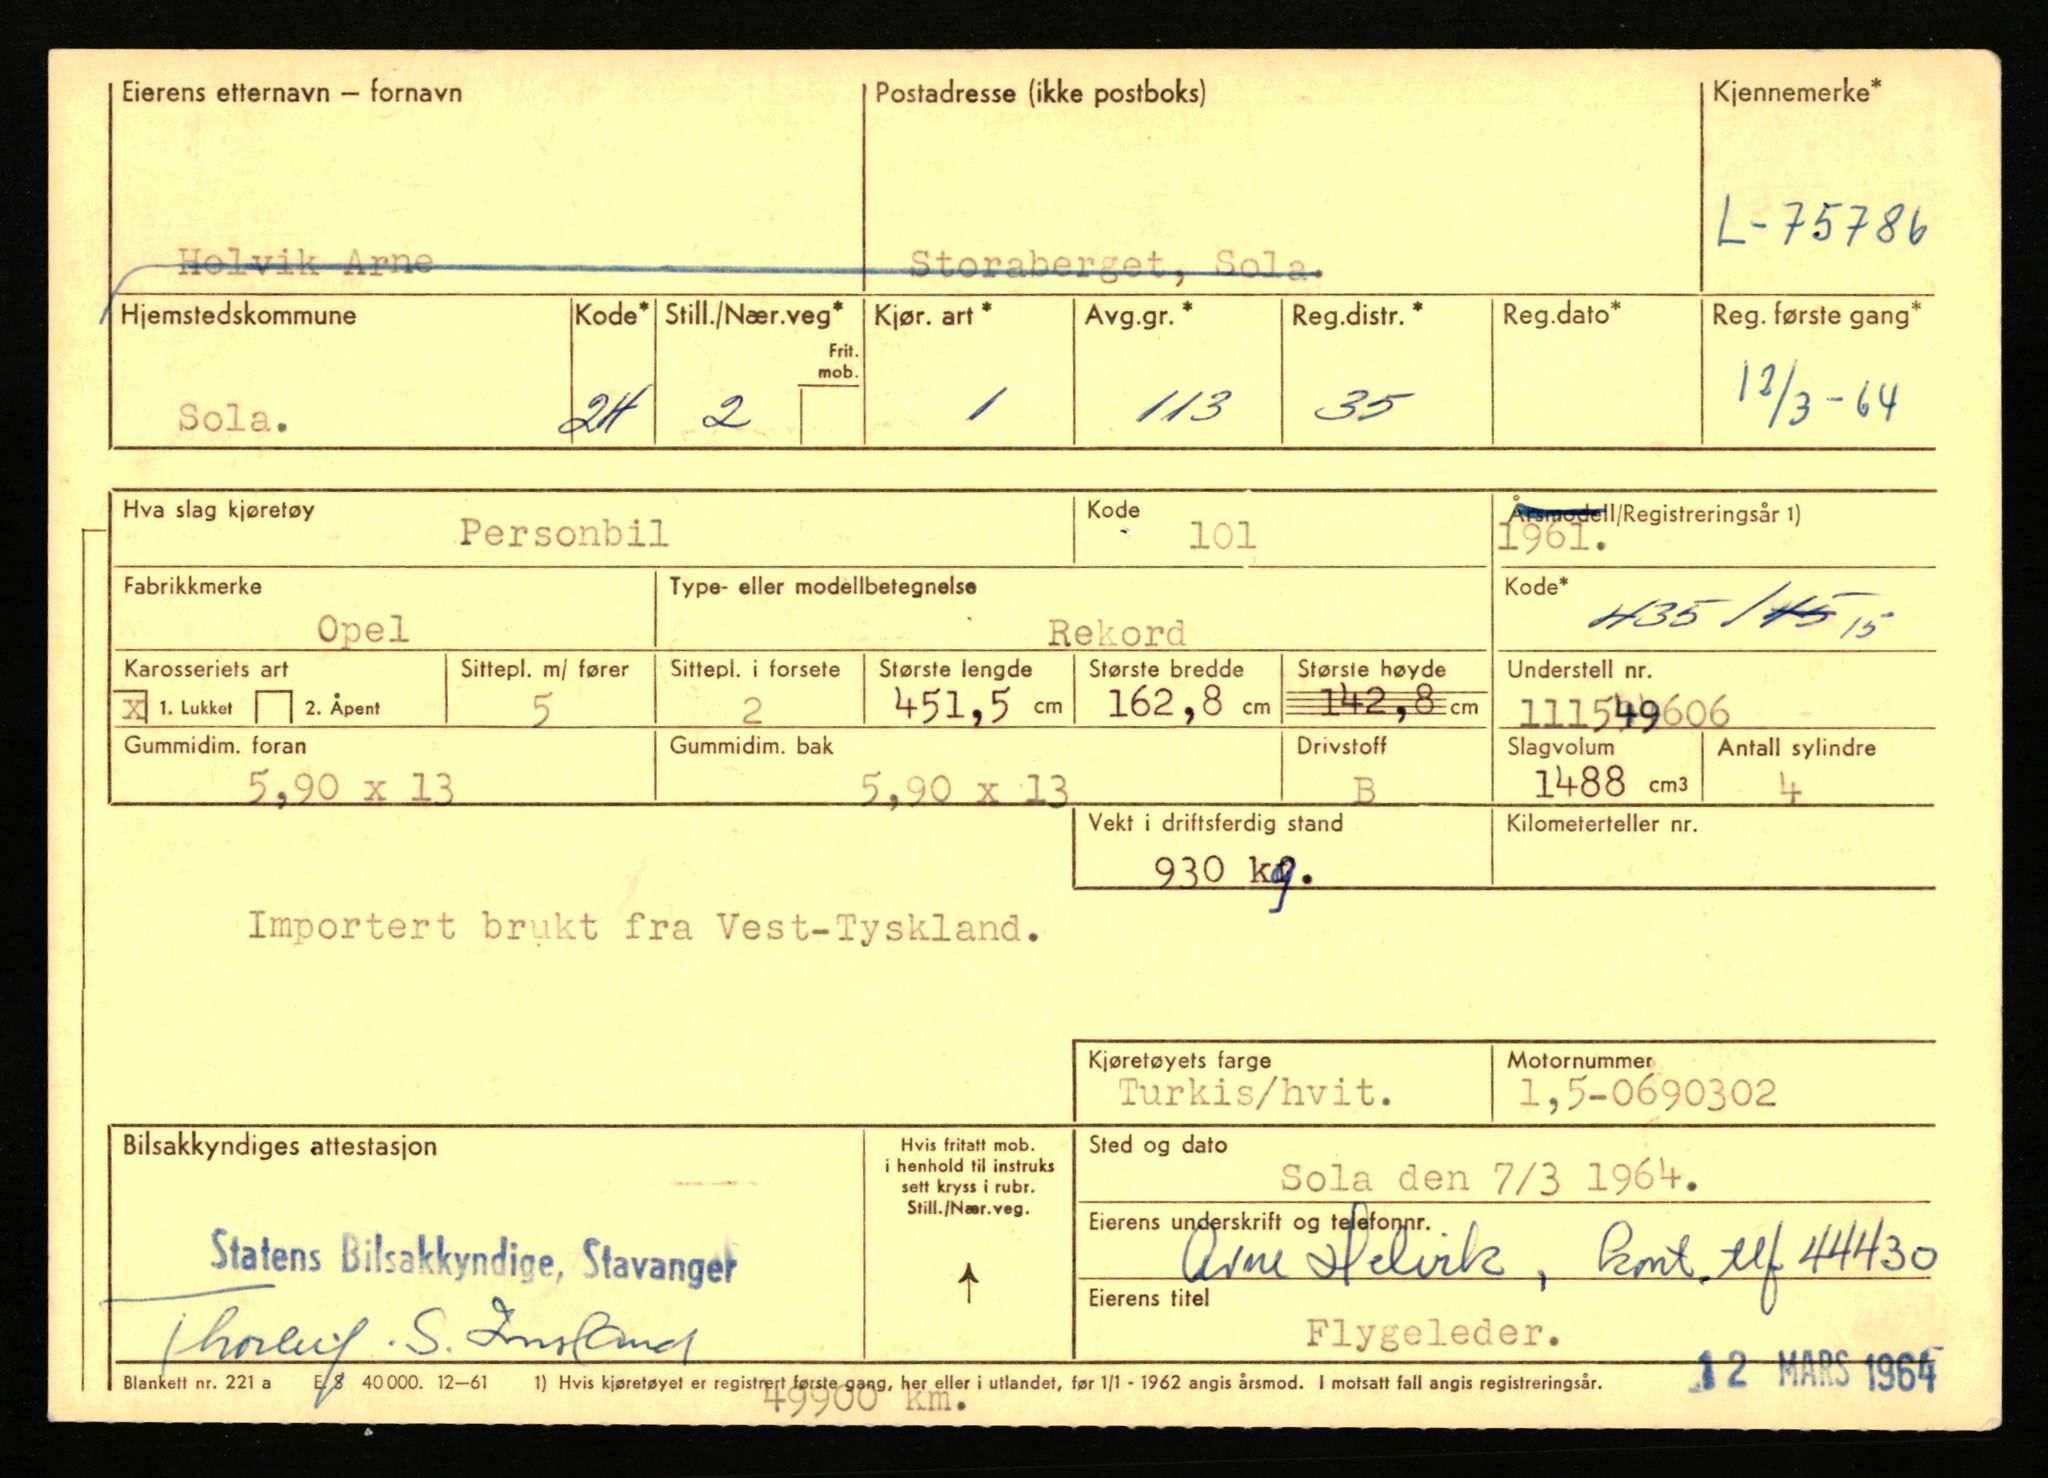 Eierens etternavn – fornavn Postadresse (ikke postboks) Kjennemerke*
L-75786
Helvik Arne Storaberget, Sola.
Hjemstedskommune Kode* Still./Nær.veg* Kjør. art* Avg.gr.* Reg.distr.* Reg.dato* Reg. første gang*
Frit.
mob.
Sola. 24 2 1 113 35 12/3-64
Hva slag kjøretøy Kode Årsmodell/Registreringsår 1)
Personbil 101 1961.
Fabrikkmerke Type- eller modellbetegnelse Kode*
Opel Rekord 435/45 15
Karosseriets art Sittepl. m/ fører Sittepl. i forsete Største lengde Største bredde Største høyde Understell nr.
x 1. Lukket 2. Åpent 5 2 451,5 cm 162,8 cm 142,8 cm 111549606
Gummidim. foran Gummidim. bak Drivstoff Slagvolum Antall sylindre
5,90 x 13 5,90 x 13 B 1488 cm3 4
Vekt i driftsferdig stand Kilometerteller nr.
930 kg.
Importert brukt fra Vest-Tyskland.
Kjøretøyets farge Motornummer
Turkis/hvit. 1,5-0690302
Bilsakkyndiges attestasjon Hvis fritatt mob. Sted og dato
i henhold til instruks
sett kryss i rubr.
Still./Nær.veg.
Sola den 7/3 1964.
Eierens underskrift og telefonnr.
Statens Bilsakkyndige, Stavanger
Arne Helvik, kont. tlf 44430
Eierens titel
Thorleif S.
Flygeleder.
12 MARS 1964
Blankett nr. 221 a E. S 40 000. 12–61 1) Hvis kjøretøyet er registrert første gang, her eller i utlandet, før 1/1 - 1962 angis årsmod. I motsatt fall angis registreringsår.
49900 km.